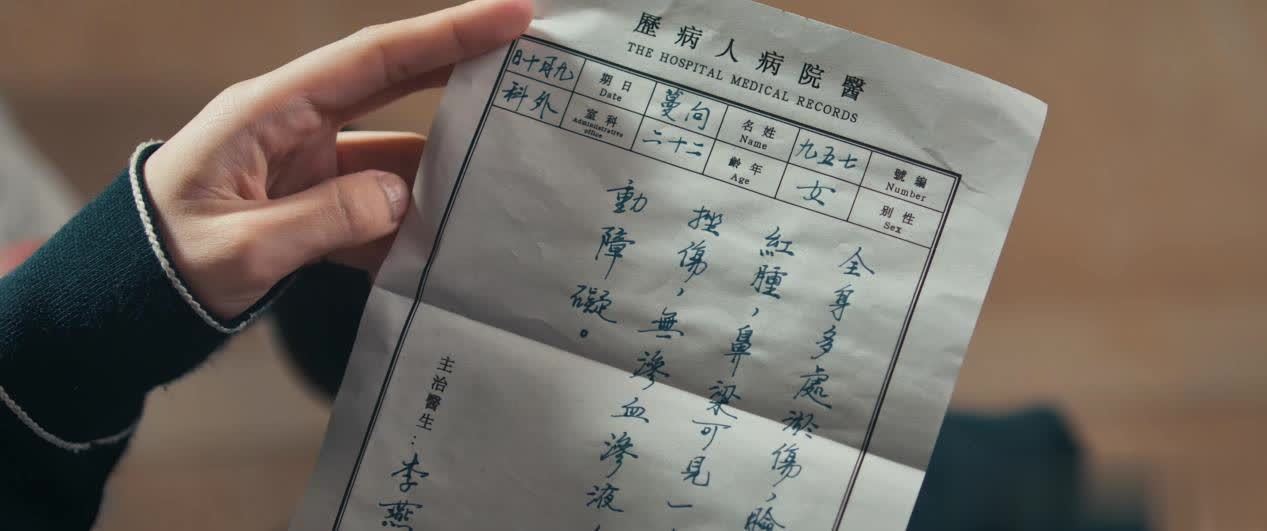 醫院病人病歷
THE HOSPITAL MEDICAL RECORDS
編號
Number
七五九
姓名
Name
向蔓
日期
Date
九月十日
性別
Sex
女
年齡
Age
二十二
科室
Administrative office
外科
全身多處淤傷，臉
紅腫，鼻梁可見一
挫傷，無滲血滲液
動障礙。
主治醫生：李燕